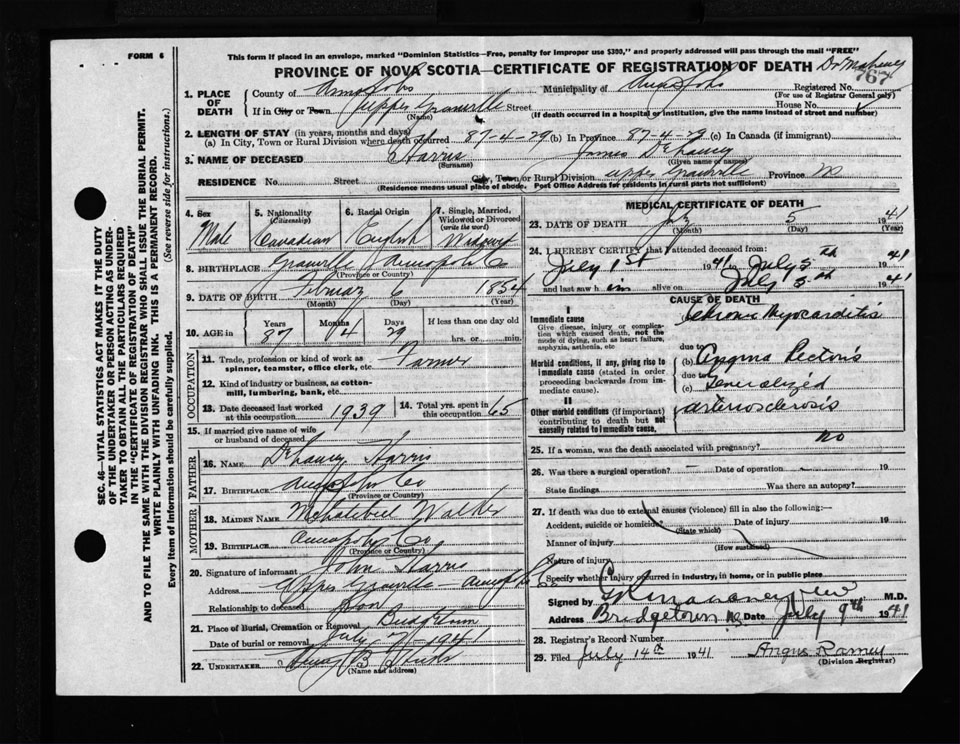 FORM 6
This form if placed in an envelope, marked "Dominion Statistics—Free, penalty for improper use $300," and properly addressed will pass through the mail "FREE"
PROVINCE OF NOVA SCOTIA—CERTIFICATE OF REGISTRATION OF DEATH
767
1. PLACE OF DEATH
County of Annapolis Municipality of Annapolis Registered No.
(For use of Registrar General only)
If in City or Town Upper Granville Street House No.
(Name) (If death occurred in a hospital or institution, give the name instead of street and number)
2. LENGTH OF STAY (in years, months and days)
(a) In City, Town or Rural Division where death occurred 87-4-29 (b) In Province 87-4-29 (c) In Canada (if immigrant)
3. NAME OF DECEASED Harris James
(Surname) (Given name or names)
RESIDENCE No. Street City, Town or Rural Division Upper Granville Province
(Residence means usual place of abode. Post Office Address for residents in rural parts not sufficient)
4. Sex Male
5. Nationality (Citizenship) Canadian
6. Racial Origin English
7. Single, Married, Widowed or Divorced (write the word) Widowed
8. BIRTHPLACE Granville Annapolis Co
(Province or Country)
9. DATE OF BIRTH February 6 1854
(Month) (Day) (Year)
10. AGE in Years 87 Months 4 Days 29 If less than one day old hrs. or min.
OCCUPATION
11. Trade, profession or kind of work as spinner, teamster, office clerk, etc. Farmer
12. Kind of industry or business, as cotton-mill, lumbering, bank, etc.
13. Date deceased last worked at this occupation 1939
14. Total yrs. spent in this occupation 65
15. If married give name of wife or husband of deceased
FATHER
16. NAME Harris
17. BIRTHPLACE Annapolis Co
(Province or Country)
MOTHER
18. MAIDEN NAME Walker
19. BIRTHPLACE Annapolis Co
(Province or Country)
20. Signature of informant John Harris
Address Upper Granville Annapolis Co
Relationship to deceased Son
21. Place of Burial, Cremation or Removal
Date of burial or removal July 7-1941
22. UNDERTAKER
(Name and address)
MEDICAL CERTIFICATE OF DEATH
23. DATE OF DEATH July 5 1941
(Month) (Day)
24. I HEREBY CERTIFY that I attended deceased from:
July 1st 1941 to July 5th 1941
and last saw him alive on July 5th 1941
CAUSE OF DEATH
I
Immediate cause
Give disease, injury or complication which caused death, not the mode of dying, such as heart failure, asphyxia, asthenia, etc
Chronic Myocarditis
Morbid conditions, if any, giving rise to immediate cause (stated in order proceeding backwards from immediate cause).
due to (b) Angina Pectoris
due to (c) Generalized arteriosclerosis
II
Other morbid conditions (if important) contributing to death but not causally related to immediate cause,
25. If a woman, was the death associated with pregnancy? no
26. Was there a surgical operation? — Date of operation — 19
State findings Was there an autopsy?
27. If death was due to external causes (violence) fill in also the following:—
Accident, suicide or homicide Date of injury 19
(State which)
Manner of injury
(How sustained)
Nature of injury
Specify whether injury occurred in industry, in home, or in public place
Signed by M.D.
Address Bridgetown NS Date July 9th 1941
28. Registrar's Record Number
29. Filed July 14th 1941 Angus Ramey
(Division Registrar)
SEC. 46—VITAL STATISTICS ACT MAKES IT THE DUTY OF THE UNDERTAKER OR PERSON ACTING AS UNDERTAKER TO OBTAIN ALL THE PARTICULARS REQUIRED IN THE "CERTIFICATE OF REGISTRATION OF DEATH" AND TO FILE THE SAME WITH THE DIVISION REGISTRAR WHO SHALL ISSUE THE BURIAL PERMIT.
WRITE PLAINLY WITH UNFADING INK. THIS IS A PERMANENT RECORD.
Every item of information should be carefully supplied. (See reverse side for instructions.)